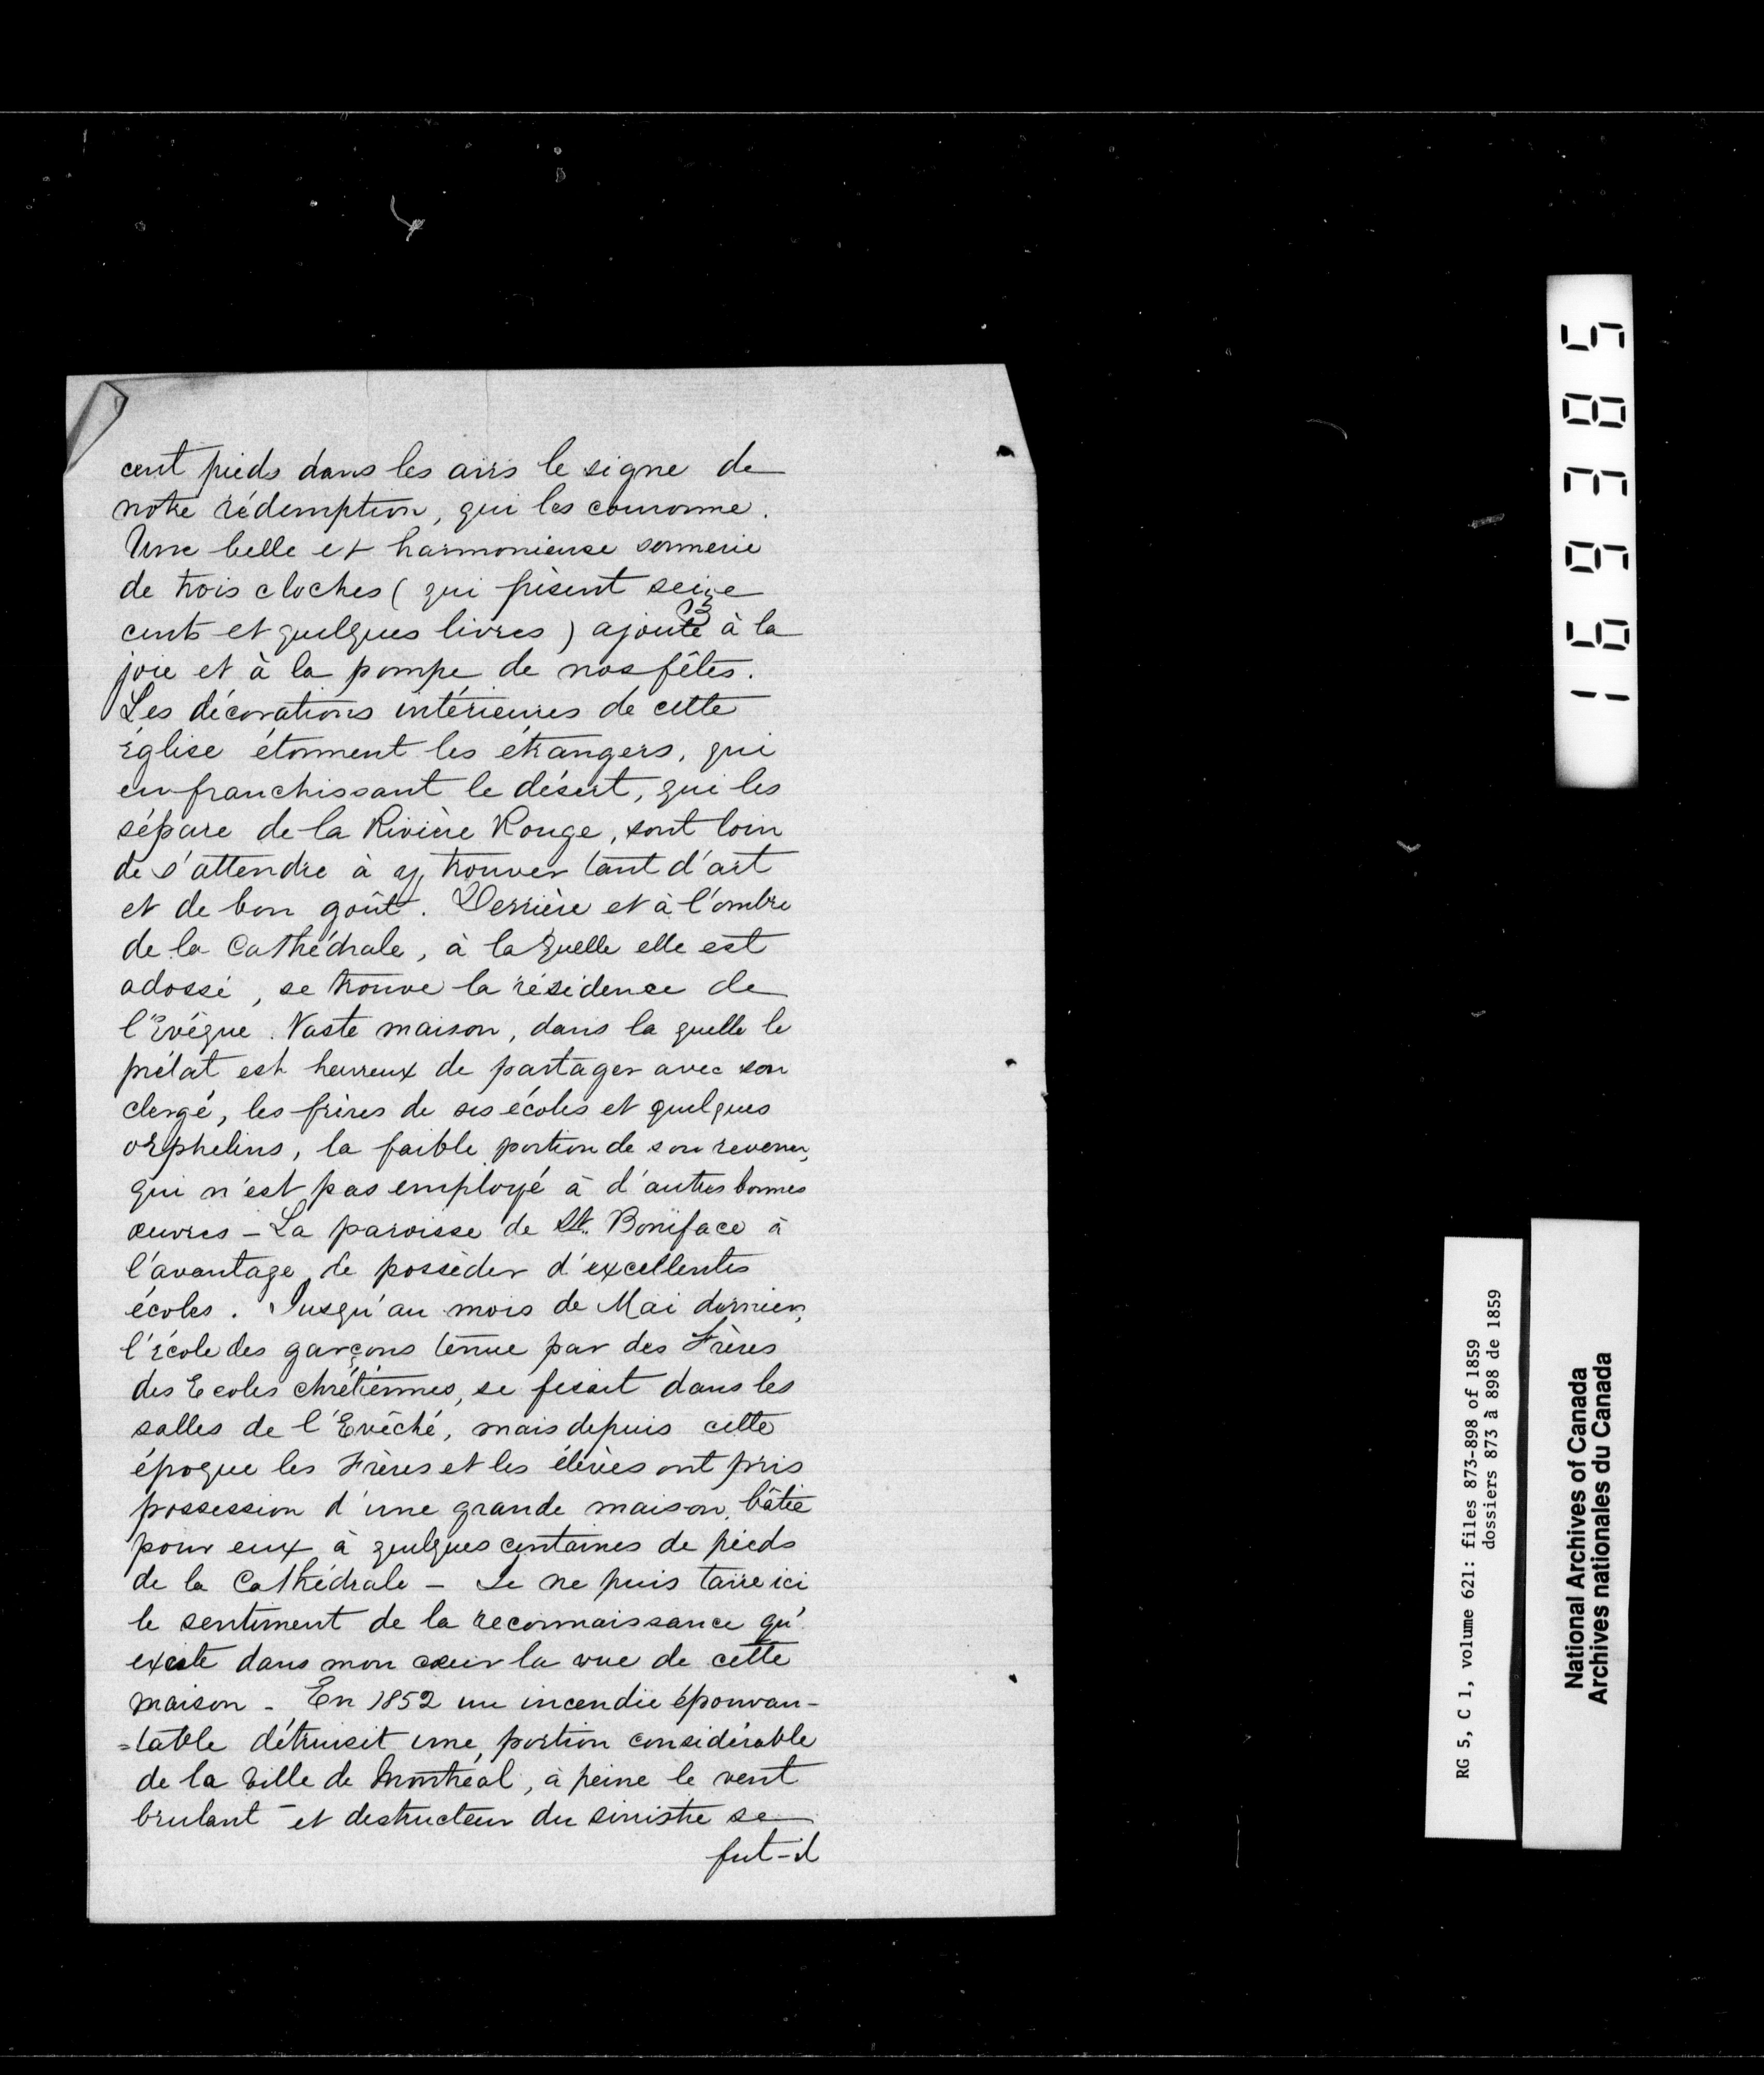 cent pieds dans les airs le signe de
notre rédemption, qui les couronne.
Une belle et harmonieuse sonnerie
de trois cloches ( qui pèsent seize
cents et quelques livres ) ajoute à la
joie et à la pompe de nos fêtes.
Les décorations intérieures de cette
Église étonnent les étrangers, qui
en franchissant le désert, qui les
sépare de la Rivière Rouge, sont loin
de s'attendre à y trouver tant d'art
et de bon goût. Derrière et à l'ombre
de la Cathédrale, à la quelle elle est
adossé, se trouve la résidence de
l'Evêque. Vaste maison, dans la quelle le
prélat est heureux de partager avec son
clergé, les frères de ses écoles et quelques
orphelins, la faible portion de son revenu,
qui n'est pas employé à d'autres bonnes
œuvres – La paroisse de St. Boniface à
l'avantage de posséder d'excellentes
écoles. Jusqu'au mois de Mai dernier,
l'école des garçons tenue par des Frères
des Ecoles chrétiennes, se fesait dans les
salles de l'Evêché, mais depuis cette
époque les Frères et les élèves ont pris
possession d'une grande maison, bâtie
pour eux à quelques centaines de pieds
de la Cathédrale – Je ne puis taire ici
le sentiment de la reconnaissance qu'
excite dans mon cœur la vue de cette
maison – En 1852 un incendie épouvan-
=table détruisit une portion considérable
de la Ville de Montréal, à peine le vent
brulant et destructeur du sinistre se
fut-il
169385
RG 5, C 1, volume 621: files 873-898 of 1859
dossiers 873 à 898 de 1859
National Archives of Canada
Archives nationales du Canada